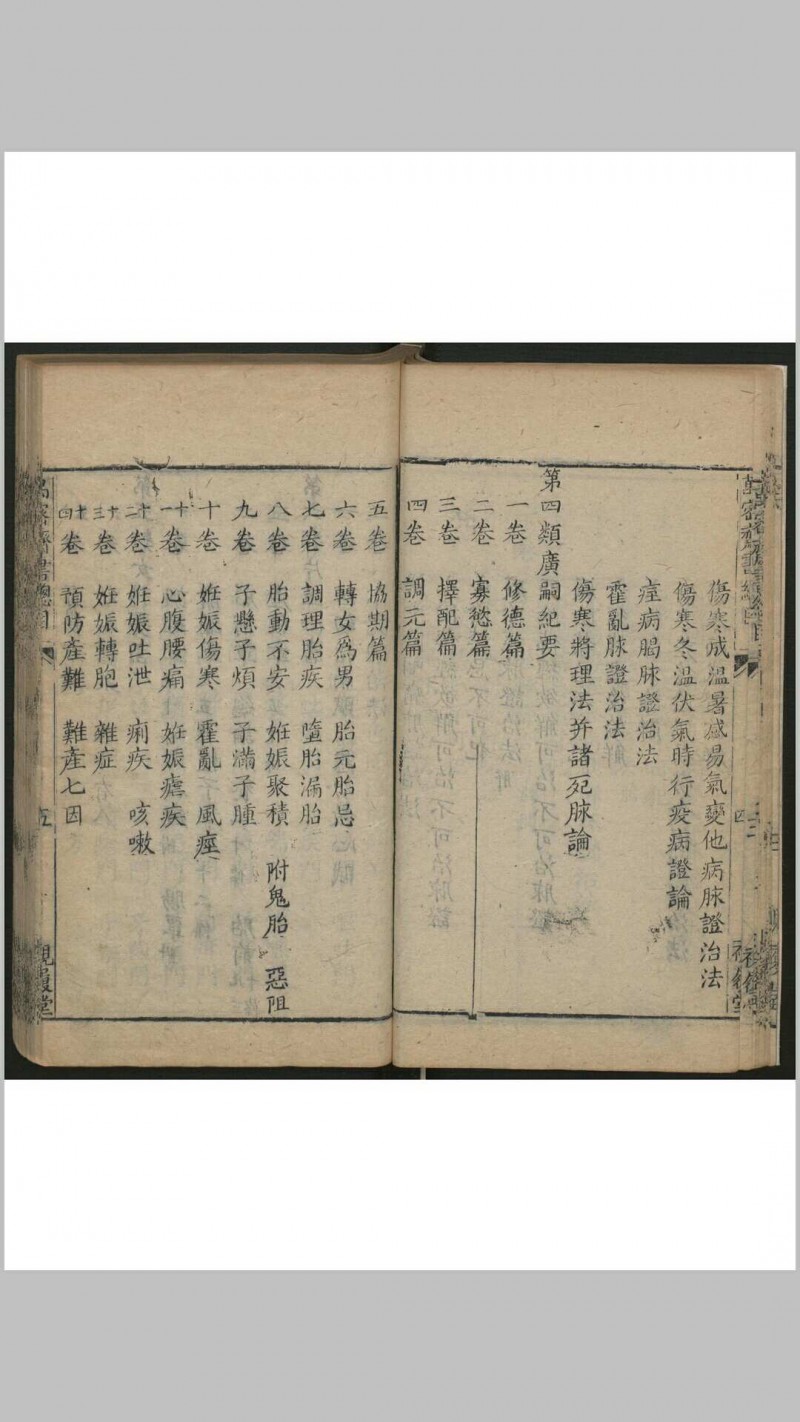 傷寒成溫暑感易氣變他病脉證治法
傷寒冬溫伏氣時行疫病證論
痓病暍脉證治法
霍亂脉證治法
傷寒將理法并諸死脉論
第四類廣嗣紀要
一卷 修德篇
二卷 寡慾篇
三卷 擇配篇
四卷 調元篇
五卷 協期篇
六卷 轉女爲男 胎元胎忌
七卷 調理胎疾 墮胎漏胎
八卷 胎動不安 姙娠聚積 附鬼胎 惡阻
九卷 子懸子煩 子滿子腫
十卷 姙娠傷寒 霍亂 風痙
十一卷 心腹腰痛 姙娠瘧疾
十二卷 姙娠吐泄 痢疾 咳嗽
十三卷 姙娠轉胞 雜症
十四卷 預防產難 難產七因
五
視履堂